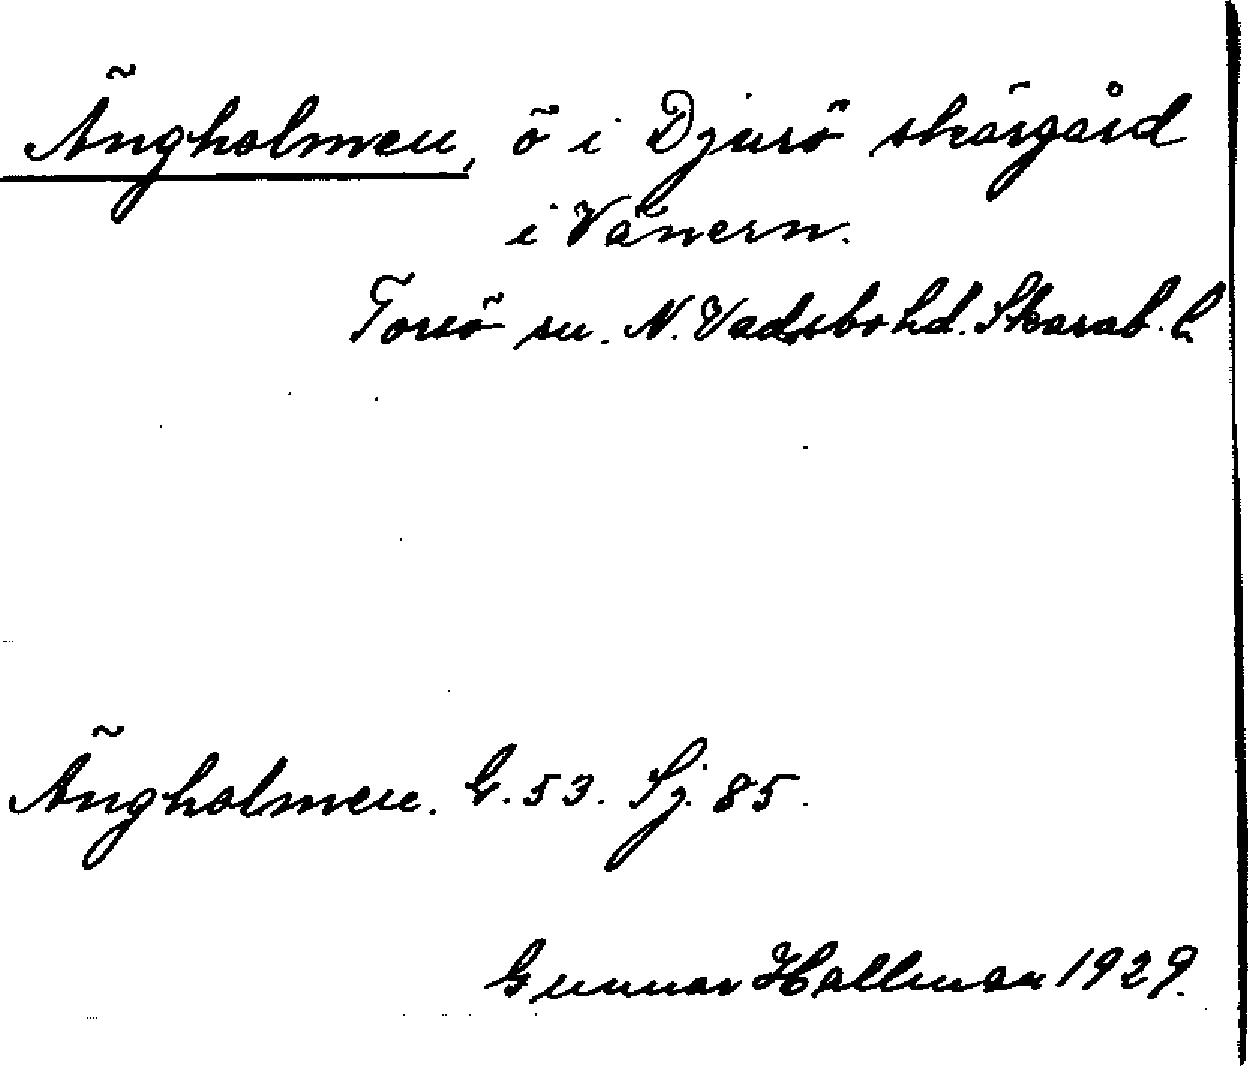 Ängholmen, ö i Djurö skärgård
i Vänern.
Torsö sn. N. Vadsbo hd. Skarab. l.
Ängholmen. G. 53. Sj. 85.
Gunnar Hallman 1929.